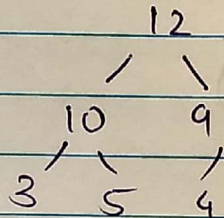 12
10 9
3 5 4